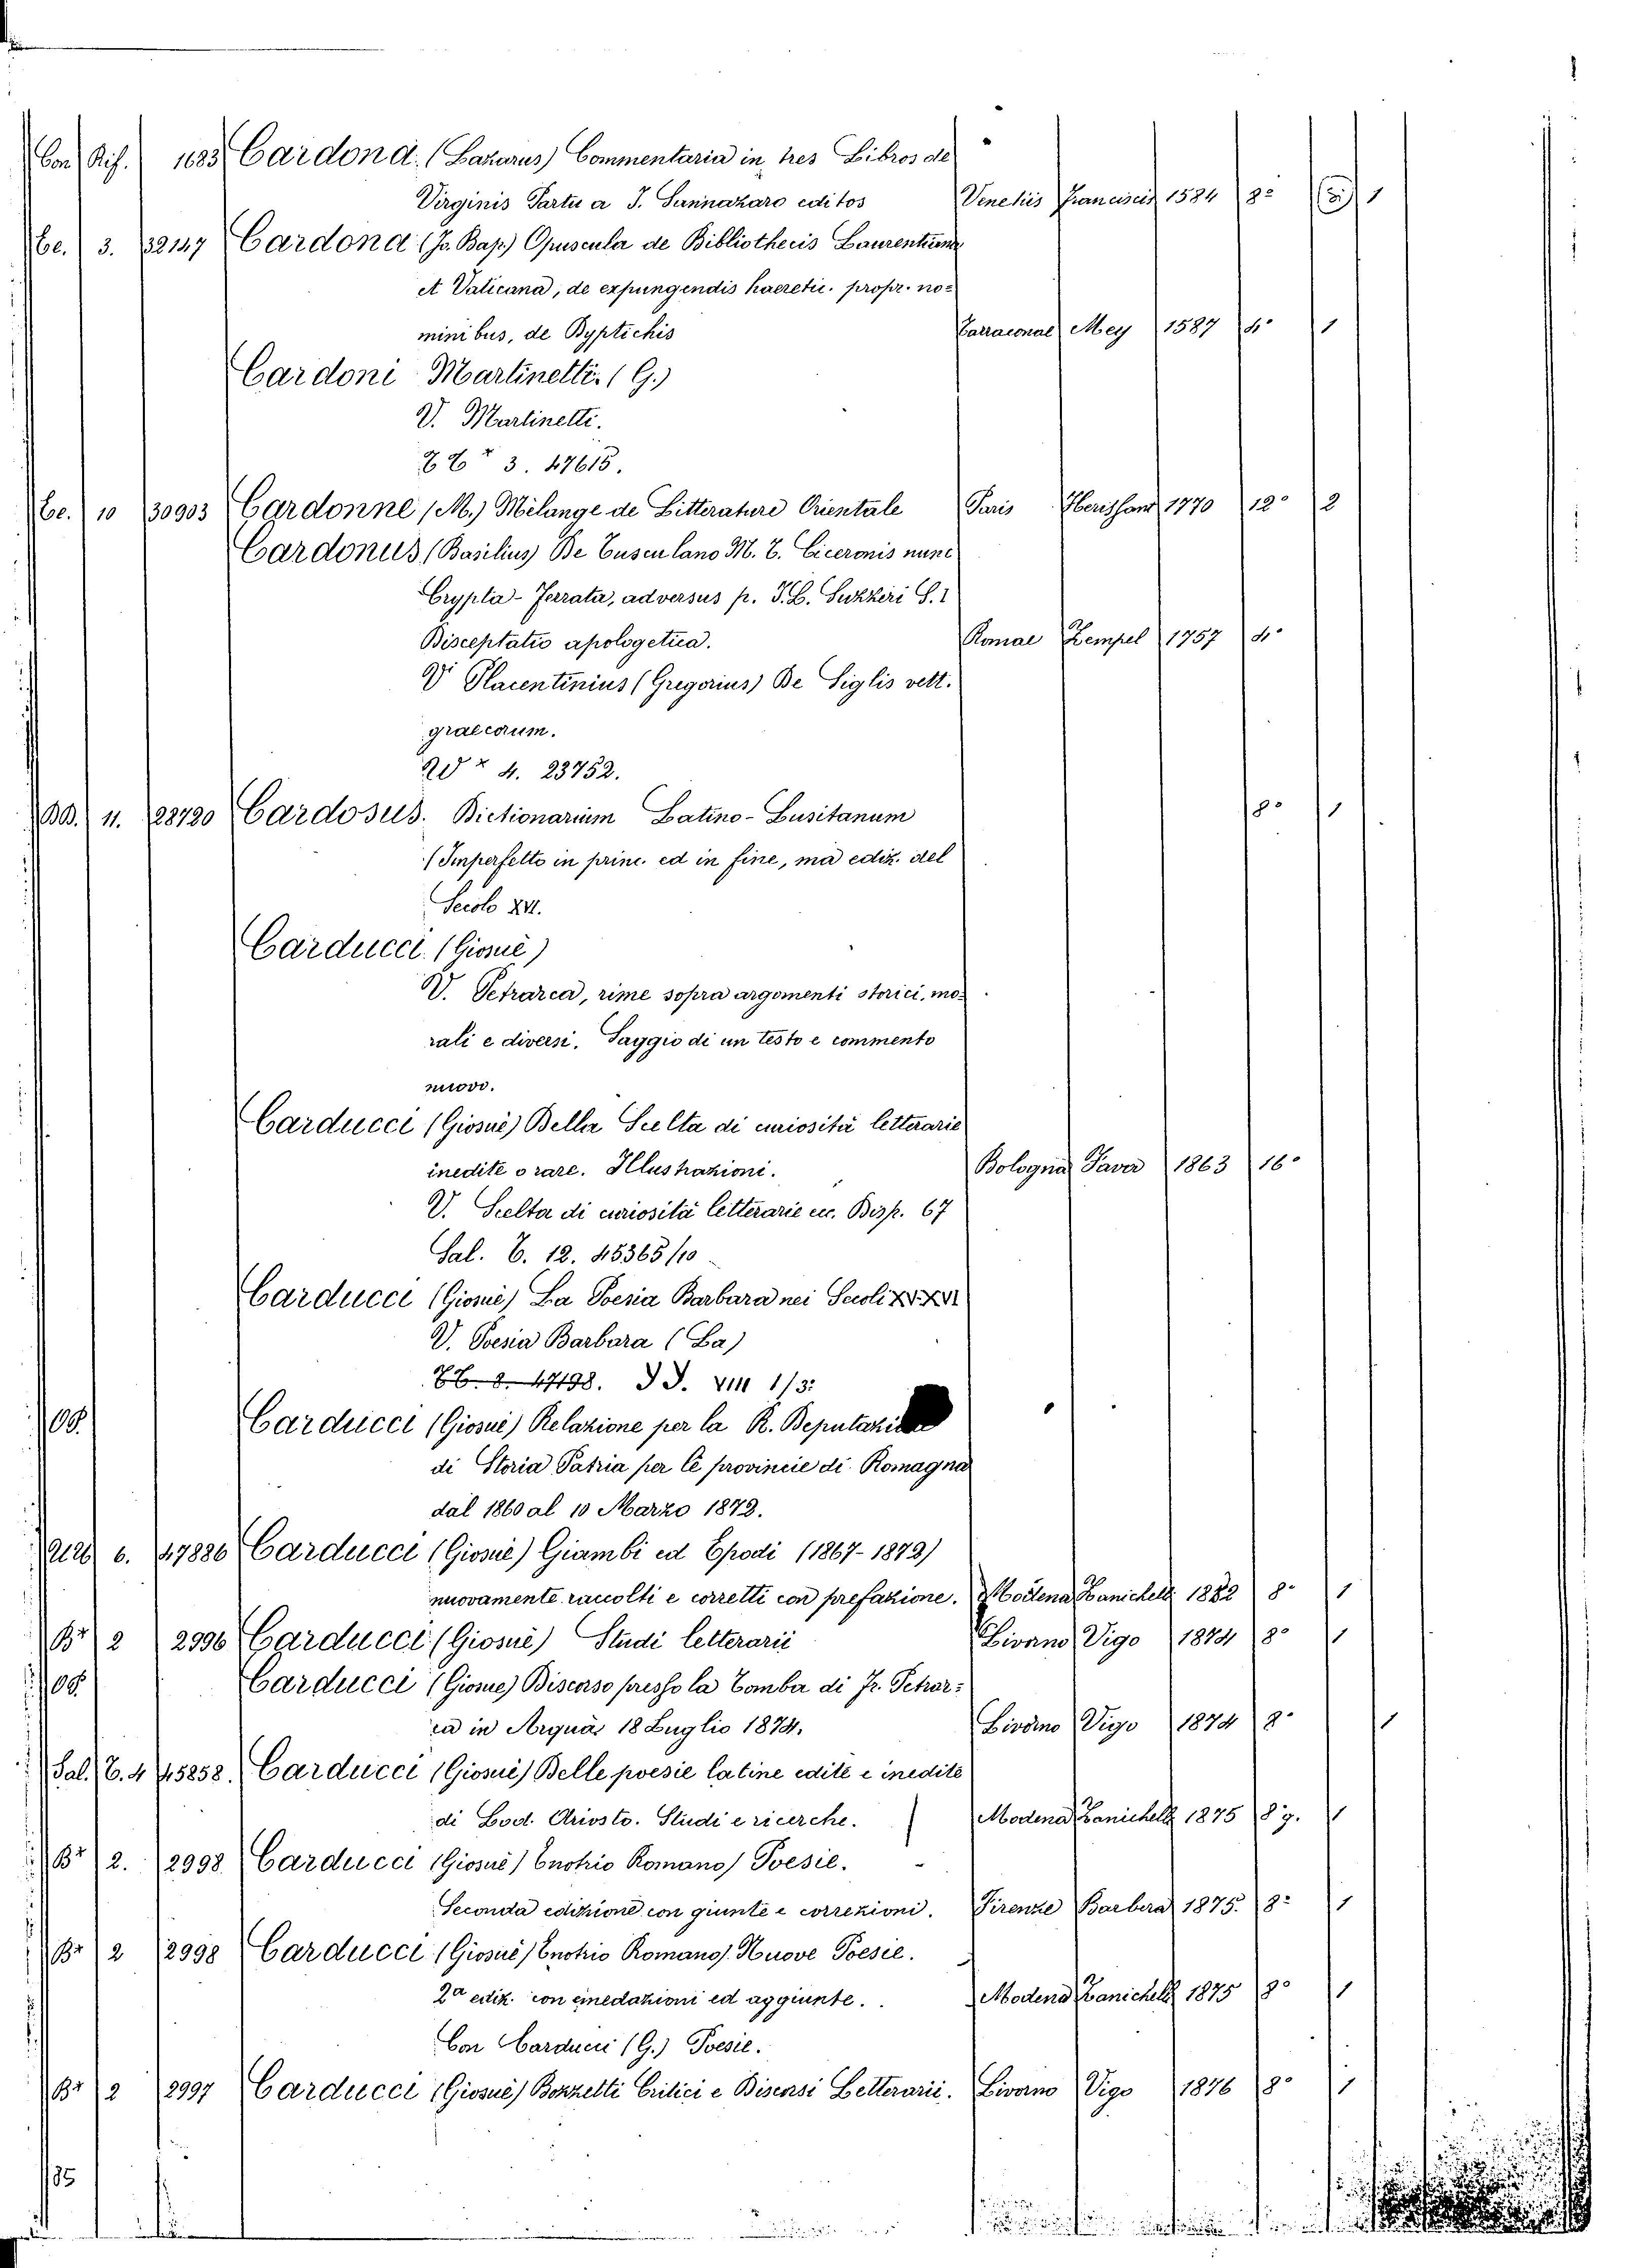 Con Rif. 1683 Cardona (Lazarus) Commentaria in tres Libros de
Virginis Partu a J. Sannazaro editos Venetiis Franciscis 1584 8º 1
Cc. 3. 32147 Cardona (Jo. Bap.) Opuscula de Bibliothecis Laurentiana
et Vaticana, de expungendis haeretic. propr. no=
minibus, de Dyptichis Tarraconae Mey 1587 4º 1
Cardoni Martinetti. (G.)
V. Martinetti.
3. 47615.
Cc. 10 30903 Cardonne (M.) Mélange de Litterature Orientale Paris Herissant 1770 12º 2
Cardonus (Basilius) De Tusculano M. T. Ciceronis nunc
Crypta-Ferrata, adversus p. J. L. Zuzzeri S. I
Disceptatio apologetica. Romae Zempel 1757 4º
V Placentinius (Gregorius) De Siglis vett.
graecorum.
4. 23752.
DD. 11. 28720 Cardosus. Dictionarium Latino-Lusitanum 8º 1
(Imperfetto in princ. ed in fine, ma ediz. del
Secolo XVI.
Carducci (Giosuè)
V. Petrarca, rime sopra argomenti storici, mo=
rali e diversi. Saggio di un testo e commento
nuovo.
Carducci (Giosuè) Della Scelta di curiosità letterarie
inedite o rare. Illustrazioni. Bologna Fava 1863 16º
V. Scelta di curiosità letterarie ec. Disp. 67
Sal. C. 12. 45365/10
Carducci (Giosuè) La Poesia Barbara nei Secoli XV. XVI
V. Poesia Barbara (La)
8. 47198. VIII 1/3:
Carducci (Giosuè) Relazione per la R. Deputazione
di Storia Patria per le provincie di Romagna
dal 1860 al 10 Marzo 1872.
6. 47886 Carducci (Giosuè) Giambi ed Epodi (1867-1872)
nuovamente raccolti e corretti con prefazione. Modena Zanichelli 1882 8º 1
Br 2 2996 Carducci (Giosuè) Studi letterarii Livorno Vigo 1874 8º 1
Carducci (Giosue) Discorso presso la Tomba di Fr. Petrar=
ca in Arquà, 18 Luglio 1874. Livorno Vigo 1874 8º 1
Sal. C. 4 45858. Carducci (Giosuè) Delle poesie latine edite e inedite
di Lod. Ariosto. Studi e ricerche. Modena Zanichelli 1875 8º g. 1
Br 2. 2998 Carducci (Giosuè) Enotrio Romano) Poesie.
Seconda edizione con giunte e correzioni. Firenze Barbera 1875. 8º 1
Br 2 2998 Carducci (Giosuè) Enotrio Romano) Nuove Poesie.
2ª ediz. con emendazioni ed aggiunte. Modena Zanichelli 1875 8º 1
Con Carducci (G.) Poesie.
Br 2 2997 Carducci (Giosuè) Bozzetti Critici e Discorsi Letterarii. Livorno Vigo 1876 8º 1